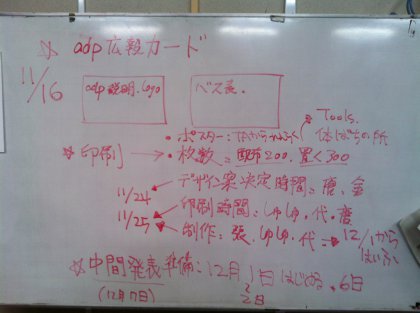 ☆ adp 広報カード
11/16
adp 説明. Logo
ベス表.
・ポスター:
Tools.
☆ 印刷 → ・枚数: 配布200. 置く300
11/24 デザイン案決定時間: 唐、金
11/25 印刷時間: しゅしゅ・代・唐
制作: 張. しゅしゅ. 代 ⇒ 12/1から
はいふ
☆ 中間発表準備: 12月1日はじめる. 6日
(12月7日)
2日